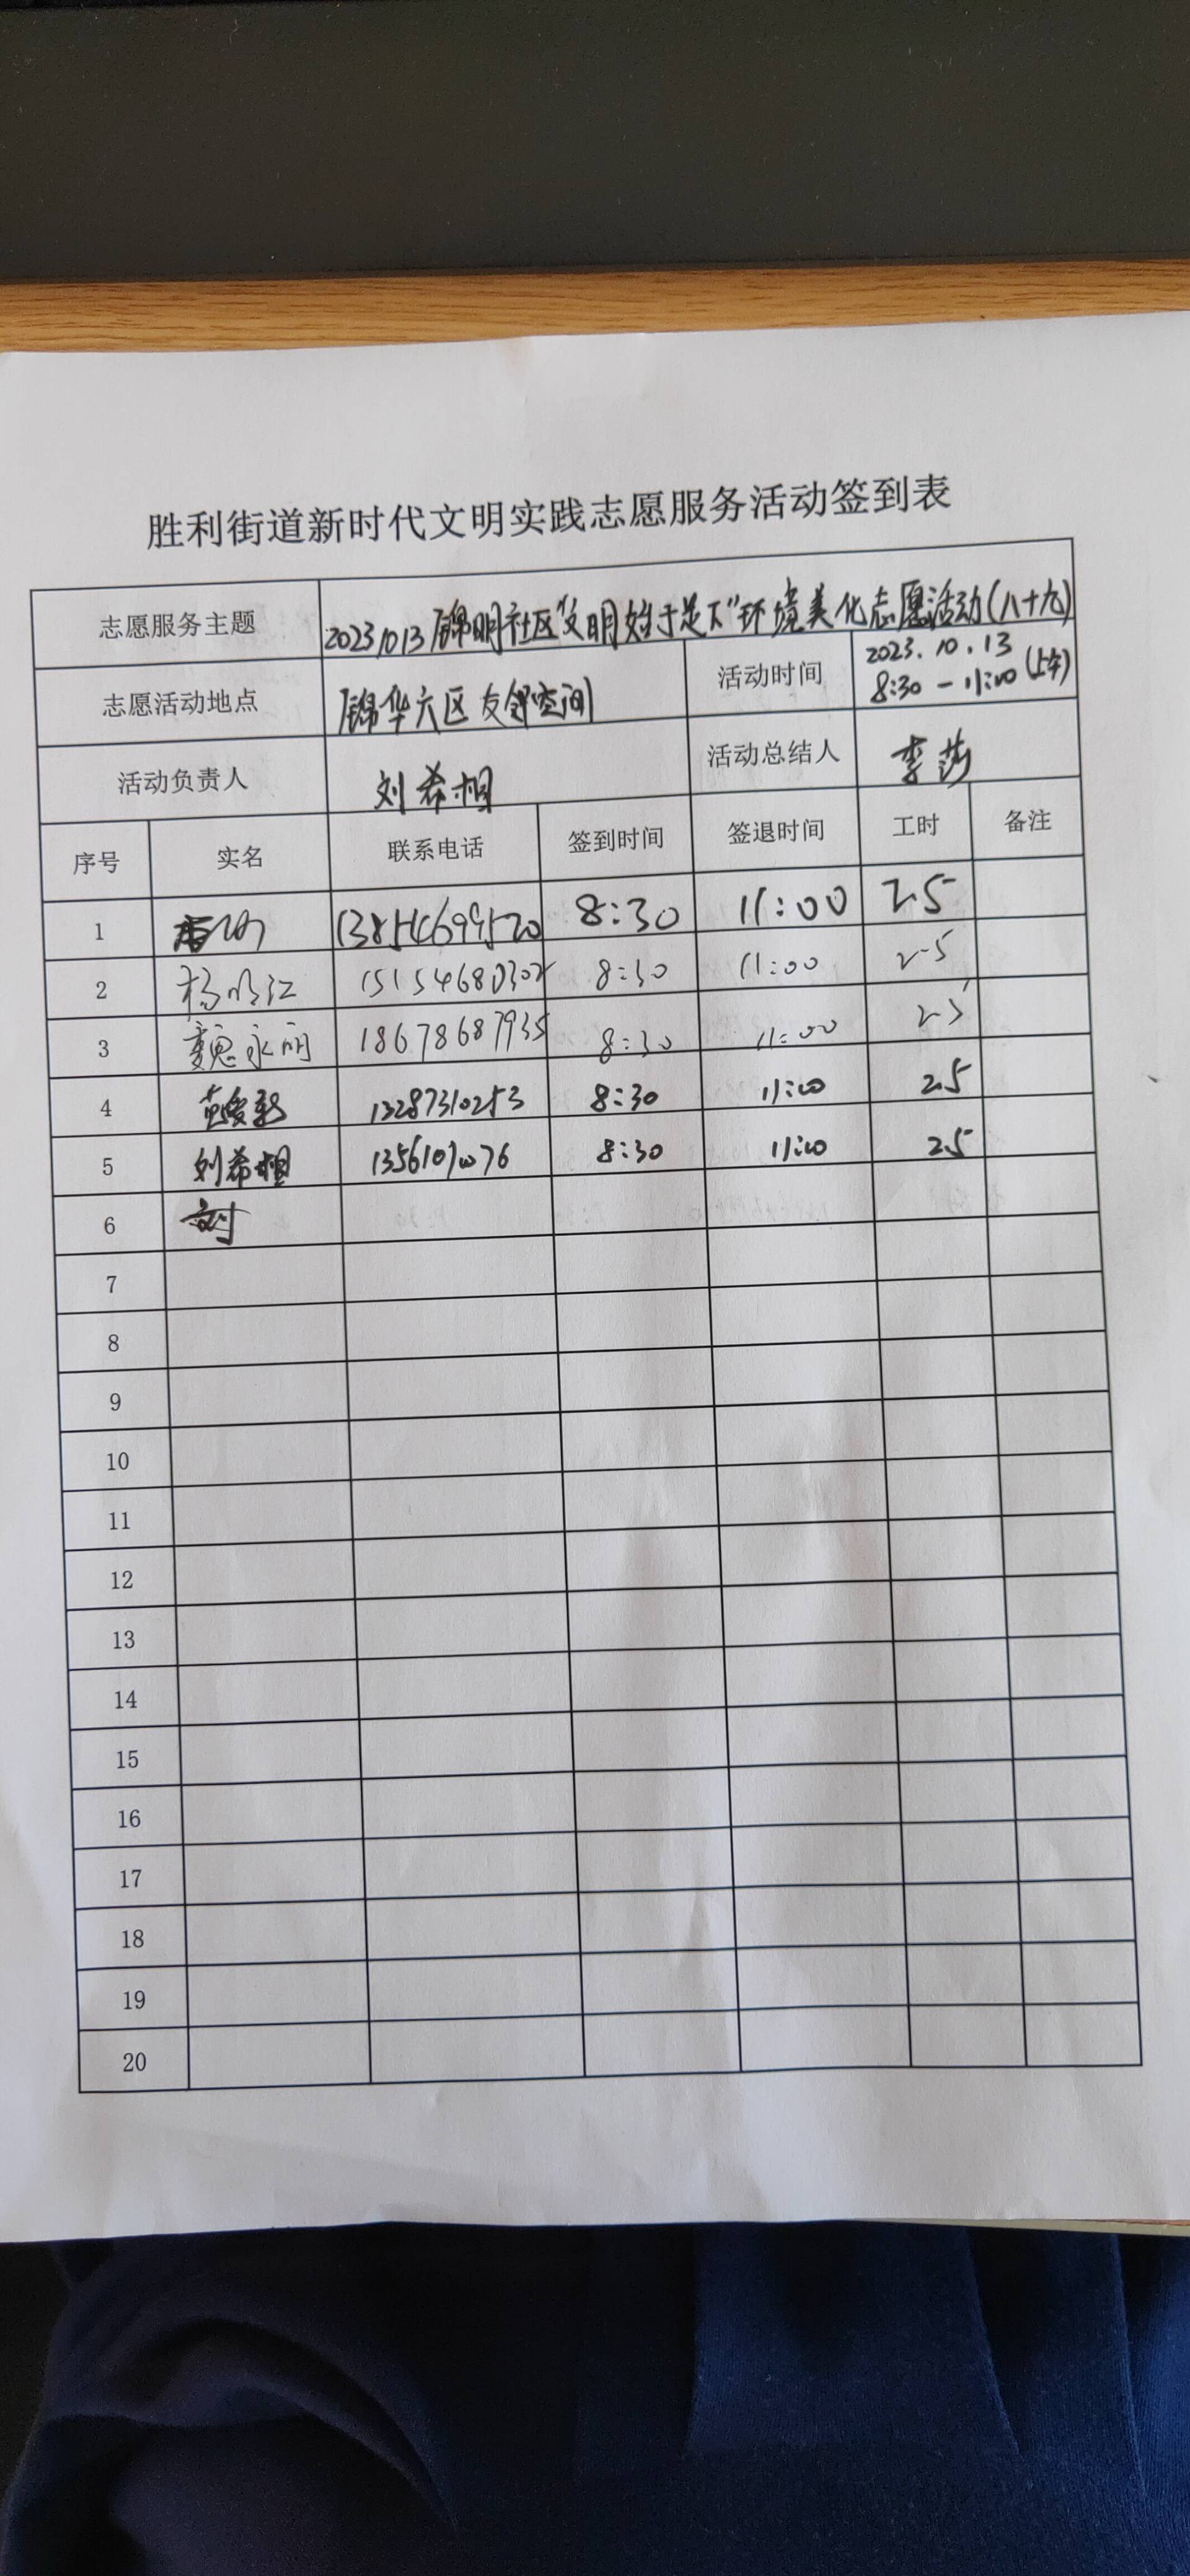 胜利街道新时代文明实践志愿服务活动签到表
志愿服务主题 20231013锦明社区"文明始于足下"环境美化志愿活动(八十九)
志愿活动地点 锦华六区友邻空间 活动时间 2023.10.13
8:30-11:00(上午)
活动负责人 刘希相 活动总结人 李莎
序号 实名 联系电话 签到时间 签退时间 工时 备注
1 13854699520 8:30 11:00 2.5
2 杨明江 15154680302 8:30 11:00 2.5
3 魏永明 18678687935 8:30 11:00 2.5
4 13287310253 8:30 11:00 2.5
5 刘希相 8:30 11:00 2.5
6
7
8
9
10
11
12
13
14
15
16
17
18
19
20